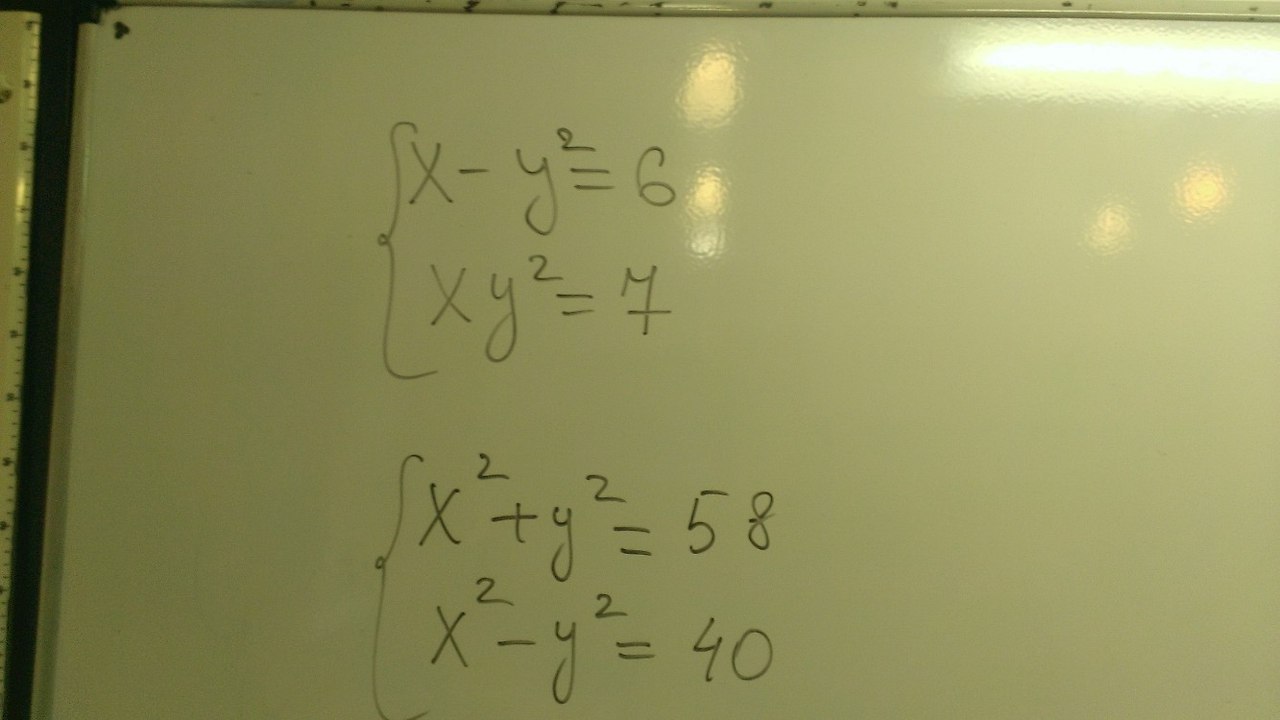 x - y² = 6
xy² = 7
x² + y² = 58
x² - y² = 40